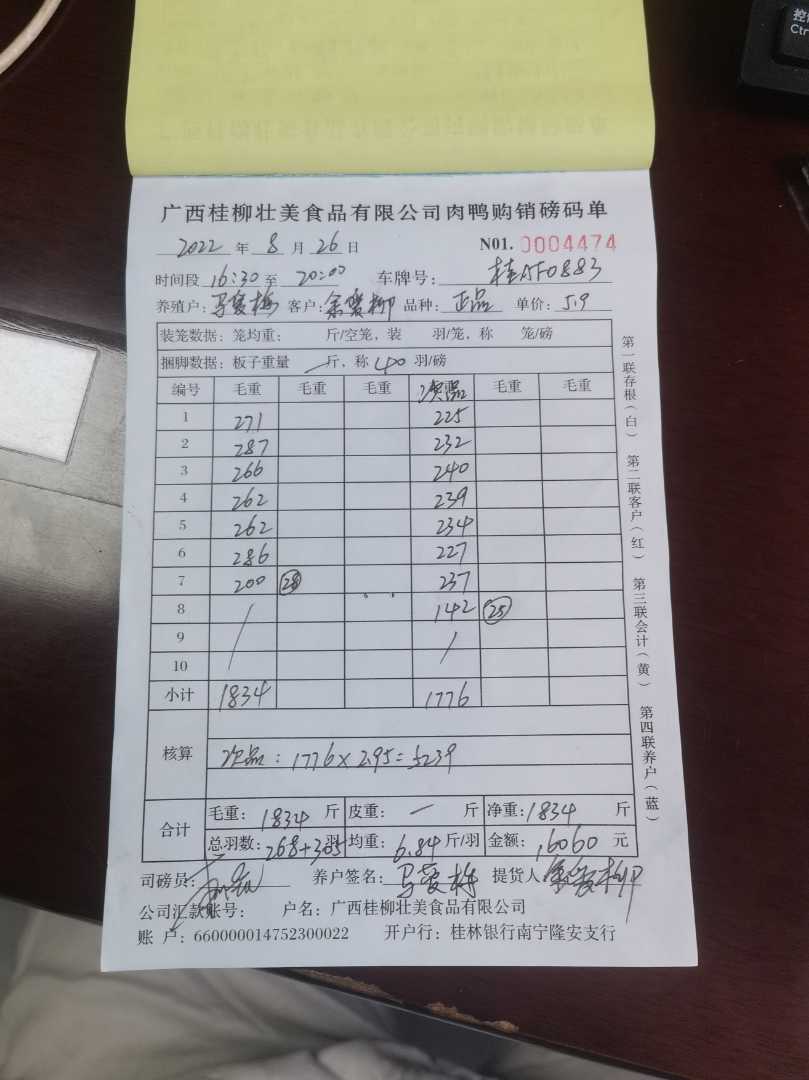 控制
Ctr
广西桂柳壮美食品有限公司肉鸭购销磅码单
2022 年 8 月 26 日 N01. 0004474
时间段 16:30 至 20:00 车牌号: 桂AF0883
养殖户: 马爱梅 客户: 余爱柳 品种: 正品 单价: 5.9
装笼数据: 笼均重: 斤/空笼, 装 羽/笼, 称 笼/磅
捆脚数据: 板子重量 斤, 称 40 羽/磅
编号 毛重 毛重 毛重 次品 毛重 毛重
1 271 225
2 287 232
3 266 240
4 262 239
5 262 234
6 286 227
7 200 28 237
8 / 142 25
9
10
小计 1834 1776
核算 次品: 1776×2.95=5239
合计 毛重: 1834 斤 皮重: — 斤 净重: 1834 斤
总羽数: 268+305 羽 均重: 6.84 斤/羽 金额: 16060 元
司磅员: 养户签名: 马爱梅 提货人 余爱柳
公司汇款账号: 户名: 广西桂柳壮美食品有限公司
账 户: 660000014752300022 开户行: 桂林银行南宁隆安支行
第一联存根(白) 第二联客户(红) 第三联会计(黄) 第四联养户(蓝)